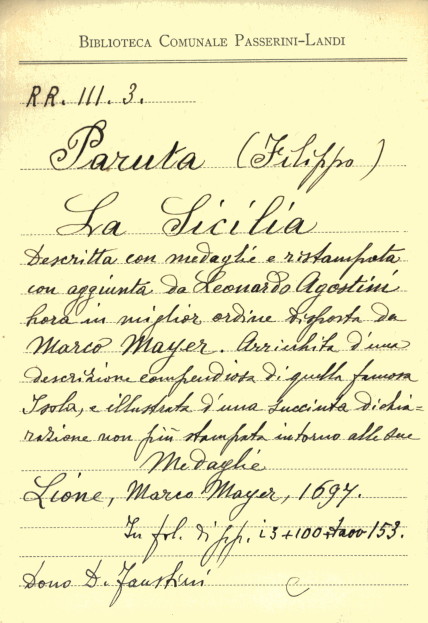 BIBLIOTECA COMUNALE PASSERINI-LANDI
RR. III. 3.
Paruta (Filippo)
La Sicilia
Descritta con medaglie e ristampata
con aggiunta da Leonardo Agostini
hora in miglior ordine disposta da
Marco Mayer. Arricchita d'una
descrizione compendiosa di quella famosa
Isola, e illustrata d'una succinta dichia=
razione non più stampata intorno alle sue
Medaglie
Lione, Marco Mayer, 1697.
In fol. di pp. 13+100+tavv 153.
Dono D. Faustini